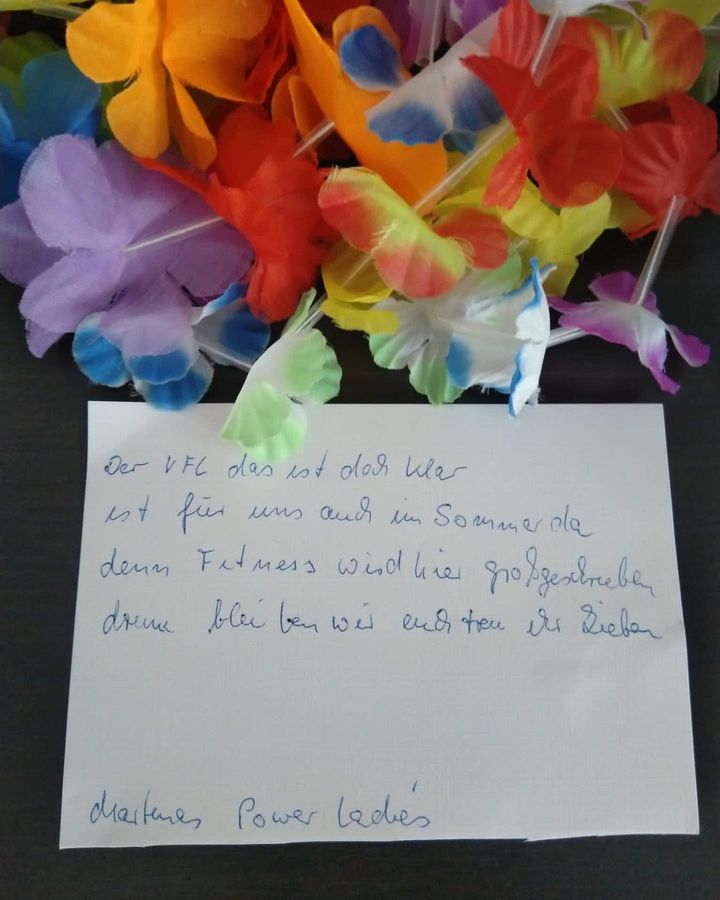 Der VFL das ist doch klar
ist für uns auch im Sommer da
denn Fitness wird hier großgeschrieben
drum bleiben wir euch treu ihr Lieben
Martinas Power Ladies